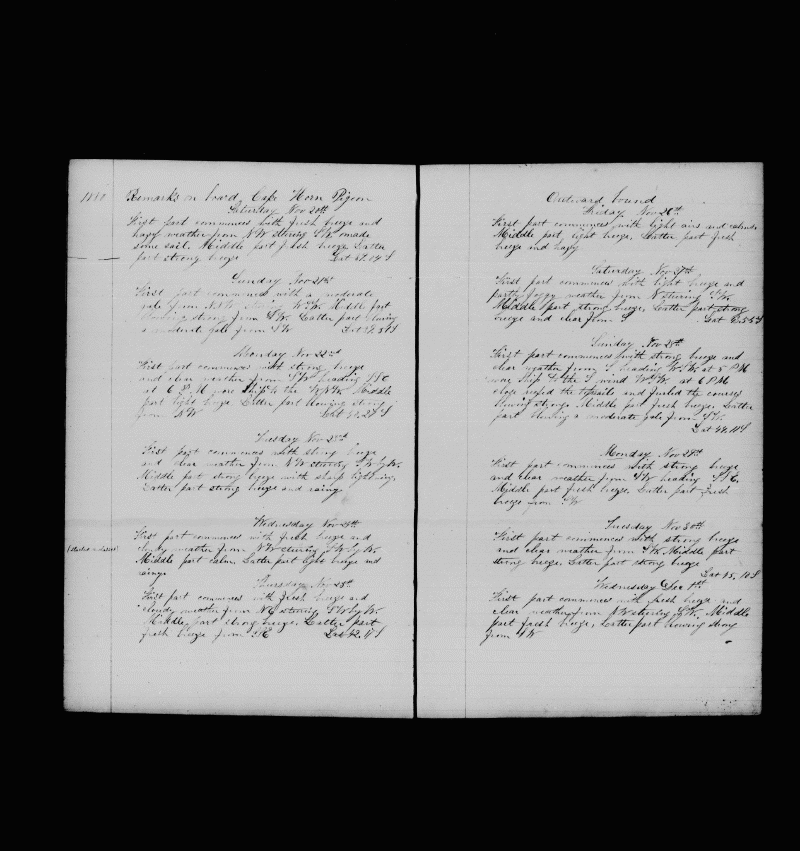 1880
Remarks on board Cape Horn Pigeon
Saturday Nov 20th
First part commences with fresh breeze and
hazy weather from NW steering SW made
some sail. Middle part fresh breeze Latter
part strong breeze Lat
Sunday Nov 21st
First part commences with a moderate
gale from
blowing strong from SW. Latter part blowing
a moderate gale from SW Lat
Monday Nov 22nd
First part commences with strong breeze
and clear weather from SW heading SSE
at 6 P.M wore ship to the Middle
part light breeze. Latter part blowing strong
from NW Lat
Tuesday Nov 23rd
First part commences with strong breeze
and clear weather from NW steering SW by W.
Middle part strong breeze with sharp lightning,
Latter part strong breeze and rainy
Wednesday Nov 24th
First part commences with fresh breeze and
cloudy weather from NW steering SW by W.
Middle part calm. Latter part light breeze and
rainy
Thursday Nov 25th
First part commences with fresh breeze and
cloudy weather from NE steering SW by W.
Middle part strong breeze, Latter part
fresh breeze from Lat 42.11 S
Outward bound
Friday Nov 26th
First part commences with light airs and calms
Middle part light breeze, Latter part fresh
breeze and hazy
Saturday Nov 27th
First part commences with light breeze and
partly foggy weather from N steering SW.
Middle part strong breeze, Latter part strong
breeze and clear from S Lat
Sunday Nov 28th
First part commences with strong breeze and
clear weather from S heading W.S.W. at 5 PM
wore ship to the S wind at 6 PM
close reefed the topsails and furled the courses
blowing strong. Middle part fresh breeze. Latter
part blowing a moderate gale from SW.
Lat 44.11 S
Monday Nov 29th
First part commences with strong breeze
and clear weather from SW heading SSE.
Middle part fresh breeze. Latter part fresh
breeze from SW
Tuesday Nov 30th
First part commences with strong breeze
and clear weather from SW. Middle part
strong breeze. Latter part strong breeze
Lat 45.10 S
Wednesday Dec 1st
First part commences with fresh breeze and
clear weather from NW steering SW. Middle
part fresh breeze, Latter part blowing strong
from NW